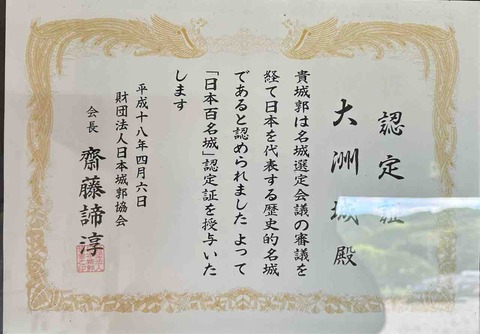 認定証
大洲城殿
貴城郭は名城選定会議の審議を
経て日本を代表する歴史的名城
であると認められました よって
「日本百名城」認定証を授与いた
します
平成十八年四月六日
財団法人日本城郭協会
会長 齋藤諦淳